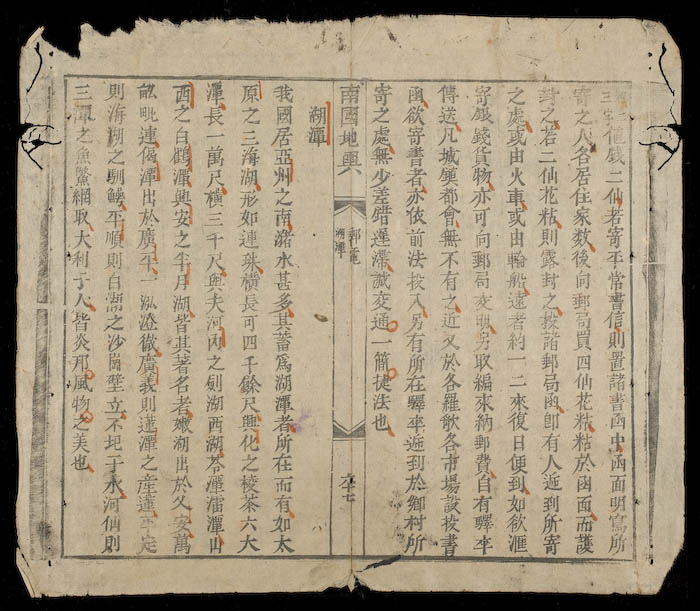 三字值錢二仙若寄平常書信則置諸書函中函面明寫所
寄之人各居住家数後向郵局買四仙花粘粘於函面而護
封之若二仙花粘則露封之投諸郵局函卽有人逓到所寄
之處或由火車或由輪船遠者約一二來復日便到如欲滙
寄銀錢貨物亦可向郵局交明另取編來納郵費自有驛夲
傳送凡城鎮都會無不有之近又於各羅歌各市場設投書
函欲寄書者亦依前法投入另有所在驛夲逓到於鄉村所
寄之處無少差錯遲滯誠交通一簡捷法也
南國地輿
郵電
湖潭
六七
湖潭
我國居亞州之南瀦水甚多其蓄爲湖潭者所在而有如太
原之三海湖形如連珠横長可四千餘尺興化之棱茶六大
潭長一萬尺横三千尺與夫河内之劍湖西湖苓潭潭山
西之白鶴潭興安之半月湖皆其著名者嫩湖出於久安萬
毗連偈潭出於廣平一泓澄徹廣義則蓮潭之産蓮平定
則海湖之馴鱷平順則白湖之沙崗壁立不圯于水河僊則
三潭之魚鱉網取大利于人皆炎邦風物之美也